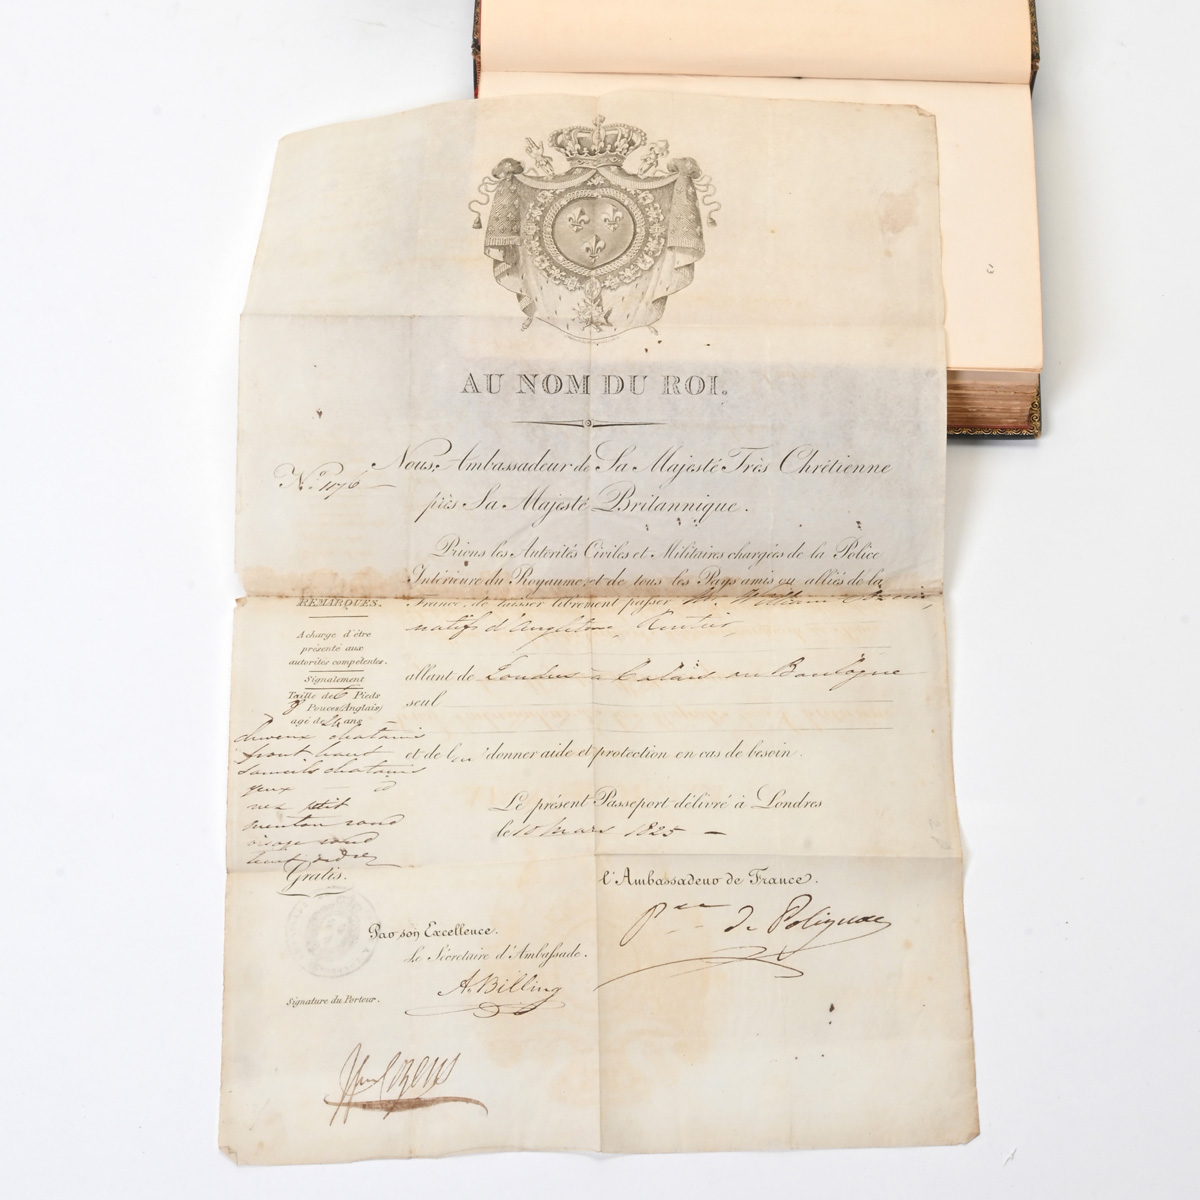 AU NOM DU ROI.
Nous, Ambassadeur de Sa Majesté Très Chrétienne
N.º 1176
près Sa Majesté Britannique.
Prions les Autorités Civiles et Militaires chargées de la Police
Intérieure du Royaume, et de tous les Pays amis ou alliés de la
France, de laisser librement passer Mr. William
natif d'Angleterre, Rentier,
allant de Londres à Calais ou Boulogne
seul
et de lui donner aide et protection en cas de besoin.
Le présent Passeport délivré à Londres
le 10 mars 1825
REMARQUES.
A charge d'être
présenté aux
autorités compétentes.
Signalement
Taille de 6 Pieds
Pouces (Anglais)
agé de ans
cheveux chatains
front haut
sourcils chatains
yeux
nez petit
menton rond
visage rond
Gratis.
l'Ambassadeur de France.
Pce de Polignac
Par son Excellence.
Le Secrétaire d'Ambassade.
A. Billing
Signature du Porteur.